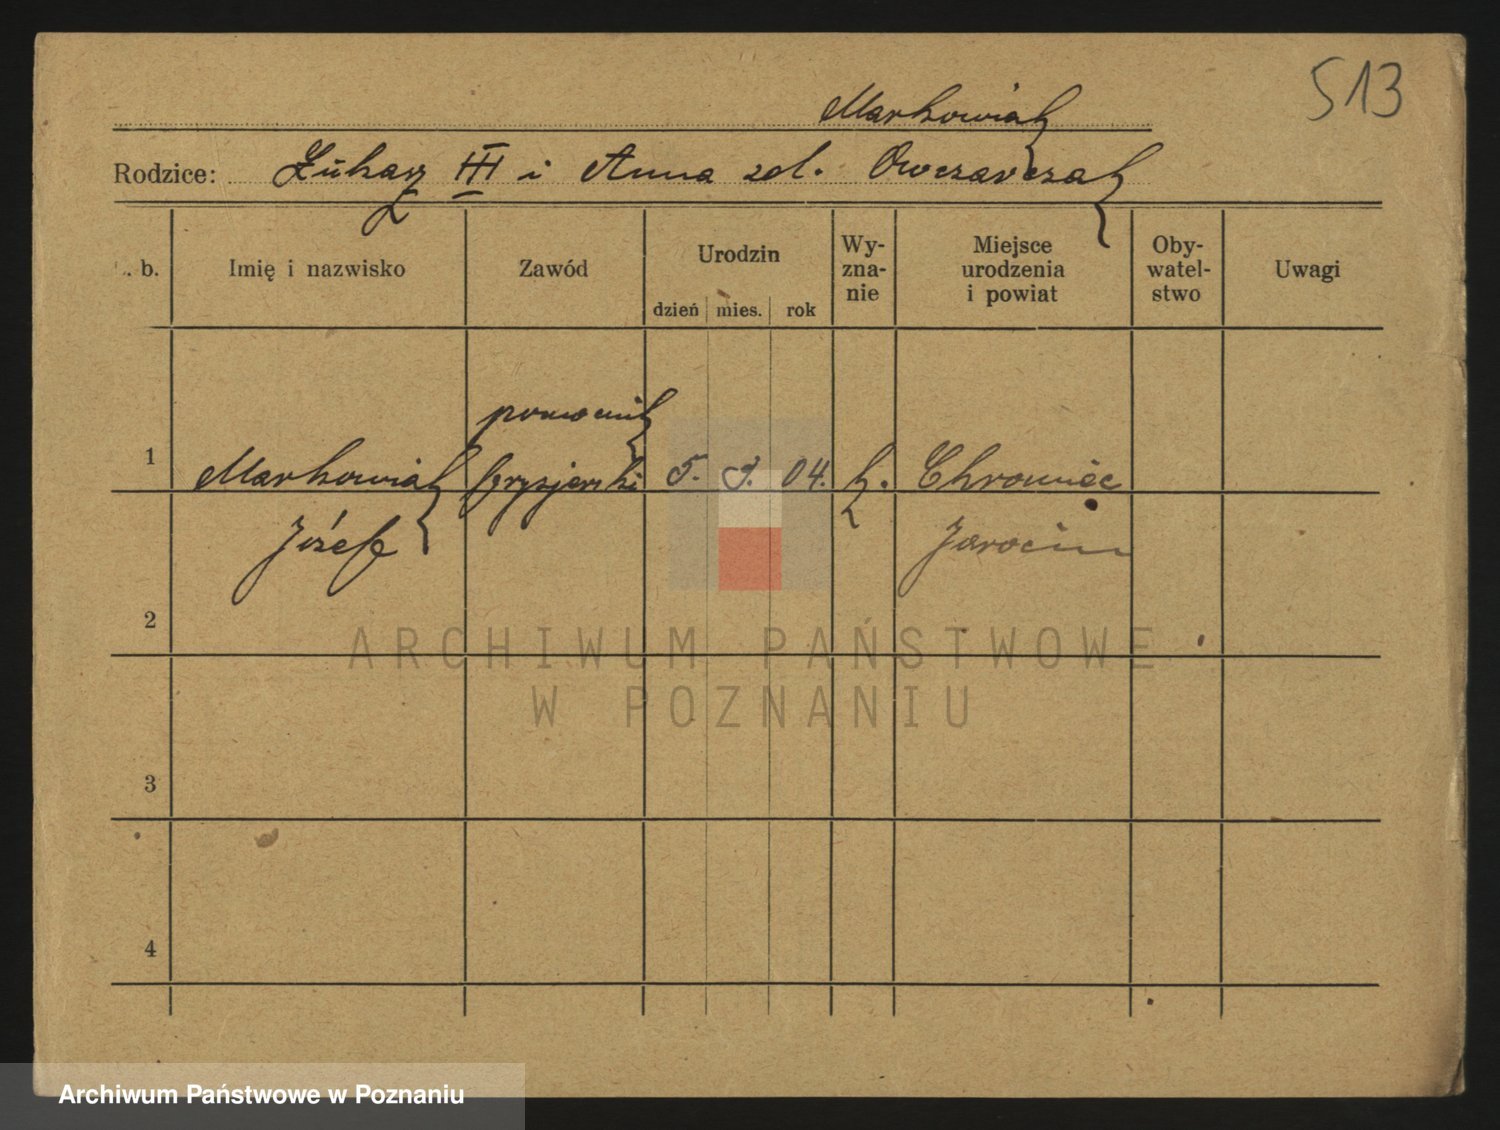 513
Markowiak
Rodzice: Łukasz III i Anna zd. Owczarczak
L. b. Imię i nazwisko Zawód Urodzin dzień mies. rok Wy-zna-nie Miejsce urodzenia i powiat Oby-watel-stwo Uwagi
pomocnik
1 Markowiak fryzjerski 5. 9. 04. k. Chrowiec
Józef Jarocin
2
ARCHIWUM PAŃSTWOWE
W POZNANIU
3
4
Archiwum Państwowe w Poznaniu